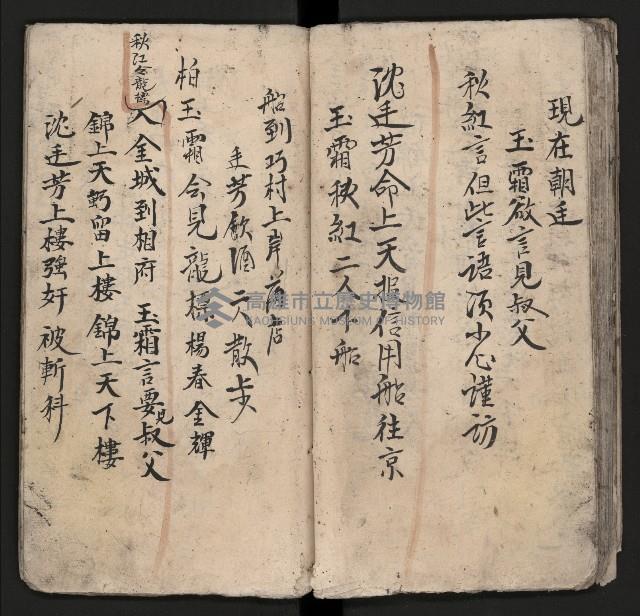 現在朝廷
玉霜啟言見叔父
秋紅言但此言語須小心謹訪
沈廷芳命上天報信用船往京
玉霜秋紅二人下船
船到巧村上岸落店
廷芳飲酒一人散步
柏玉霜会見龍標楊春金輝
秋江仝龍標
入全城到相府 玉霜言要見叔父
錦上天灣留上樓 錦上天下樓
沈廷芳上樓強奸 被斬科
高雄市立歷史博物館
KAOHSIUNG MUSEUM OF HISTORY